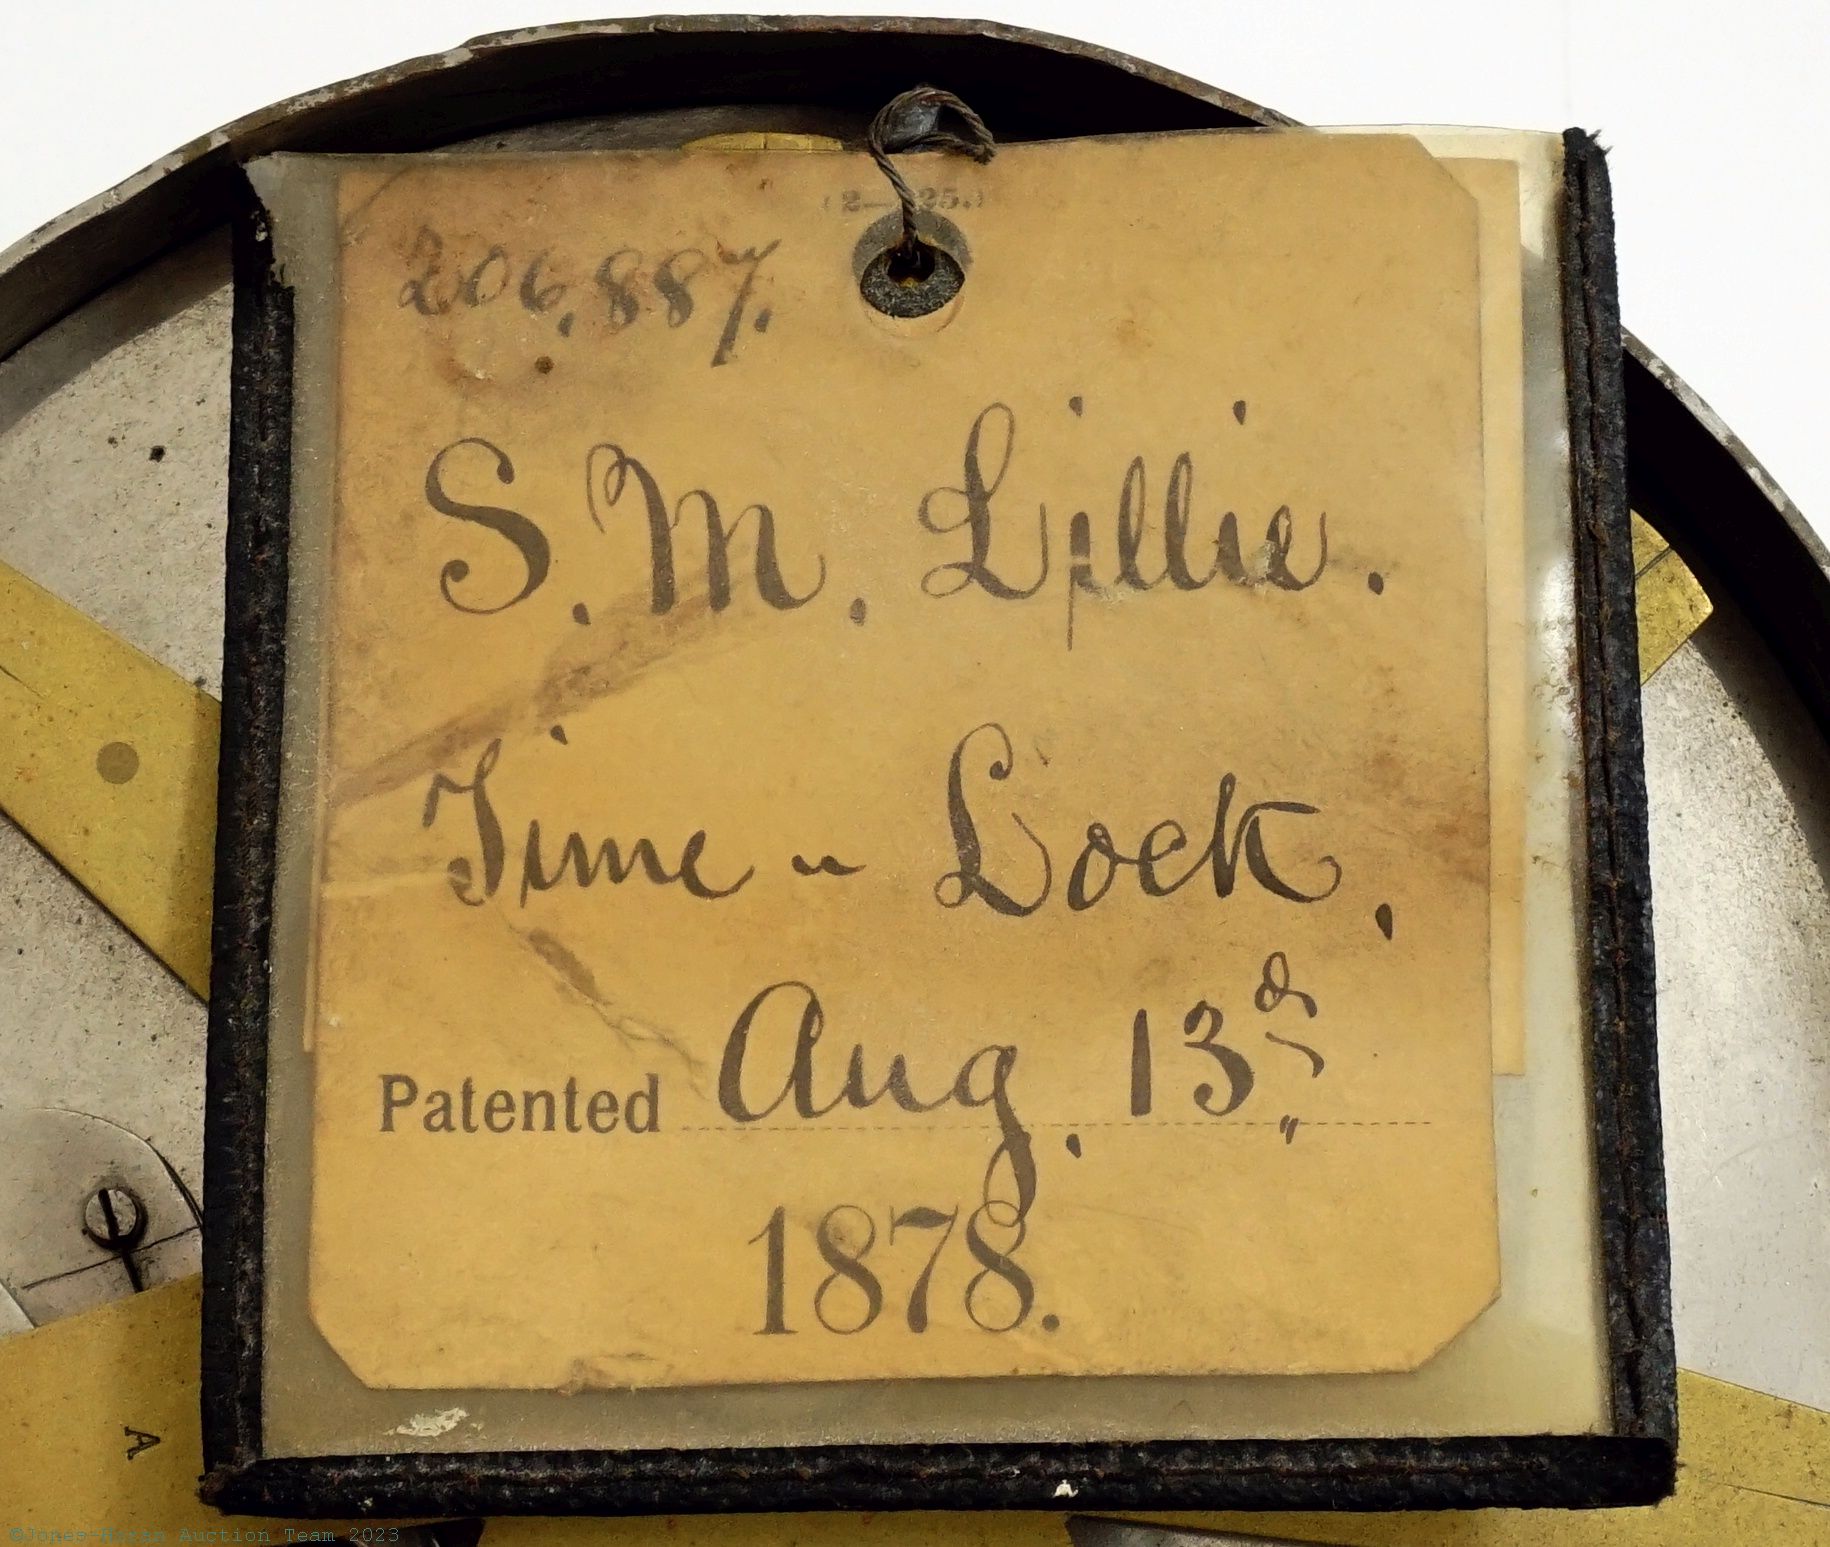 (2—325.)
206,887.
S. M. Lillie.
Time - Lock.
Patented Aug. 13th
1878.
A
©Jones-Horan Auction Team 2023